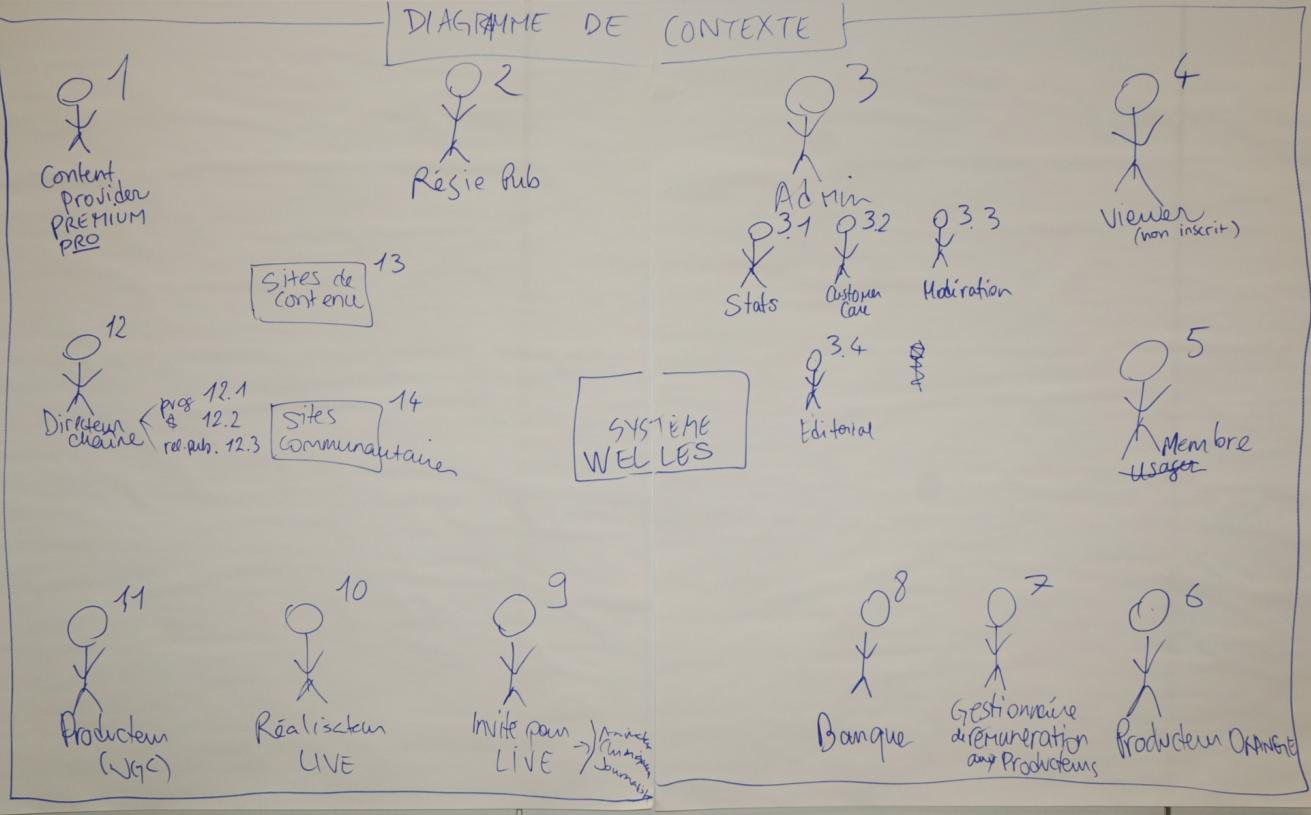 DIAGRAMME DE CONTEXTE
1
Content
Provider
PREMIUM
PRO
2
Régie Pub
3
Admin
3.1
Stats
3.2
Customer
Care
3.3
Modération
3.4
Editorial
4
Viewer
(non inscrit)
13
Sites de
contenu
12
Directeur
chaîne
prog 12.1
$ 12.2
rel. pub. 12.3
14
Sites
communautaires
SYSTÈME
WELLES
5
Membre
usager
11
Producteur
(UGC)
10
Réalisateur
LIVE
9
Invité pour
LIVE
8
Banque
7
Gestionnaire
de rémunération
aux Producteurs
6
Producteur ORANGE